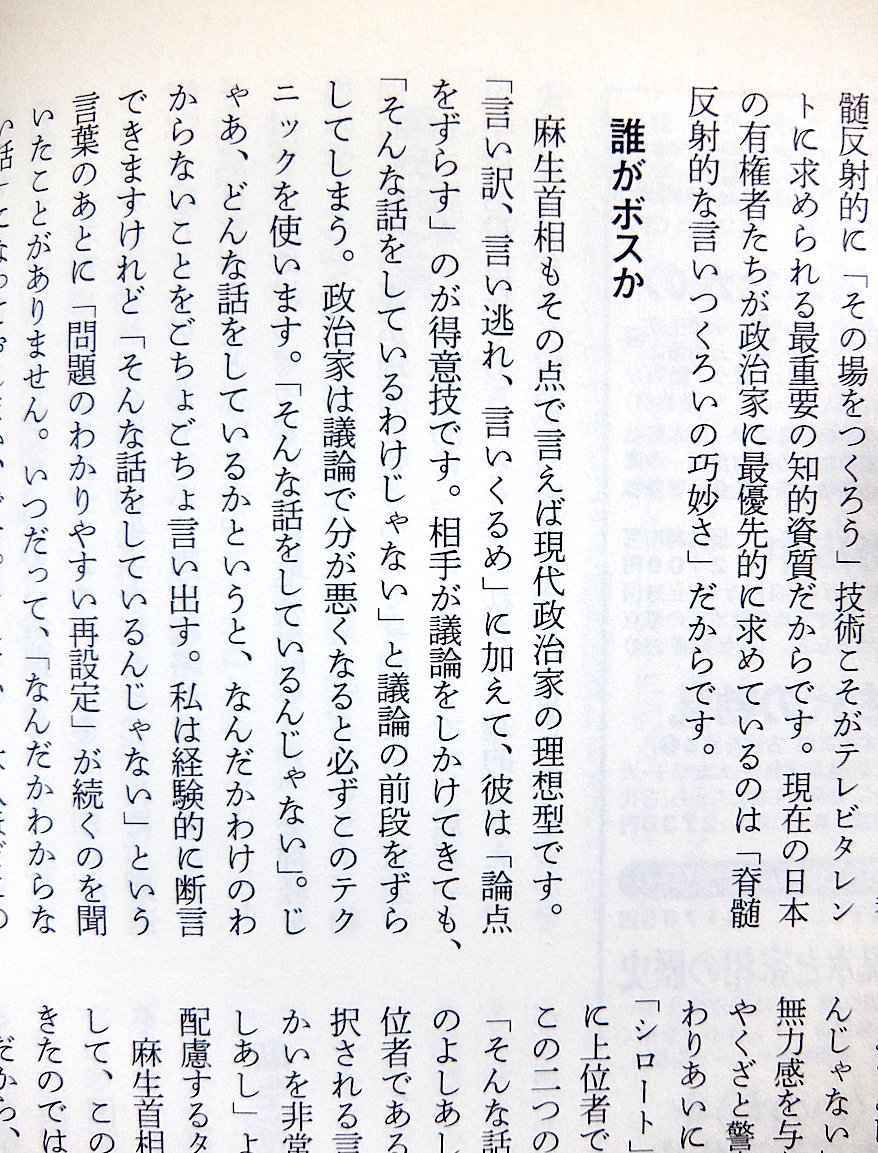 髄反射的に「その場をつくろう」技術こそがテレビタレン
トに求められる最重要の知的資質だからです。現在の日本
の有権者たちが政治家に最優先的に求めているのは「脊髄
反射的な言いつくろいの巧妙さ」だからです。
誰がボスか
麻生首相もその点で言えば現代政治家の理想型です。
「言い訳、言い逃れ、言いくるめ」に加えて、彼は「論点
をずらす」のが得意技です。相手が議論をしかけてきても、
「そんな話をしているわけじゃない」と議論の前段をずら
してしまう。政治家は議論で分が悪くなると必ずこのテク
ニックを使います。「そんな話をしているんじゃない」。じ
ゃあ、どんな話をしているかというと、なんだかわけのわ
からないことをごちょごちょ言い出す。私は経験的に断言
できますけれど「そんな話をしているんじゃない」という
言葉のあとに「問題のわかりやすい再設定」が続くのを聞
いたことがありません。いつだって、「なんだかわからな
んじゃない
無力感を与
やくざと警
わりあいに
「シロート」
に上位者で
この二つの
「そんな話
のよしあし
位者である
択される言
かいを非常
しあし」よ
配慮するタ
麻生首相
して、この
きたのでは
だから、